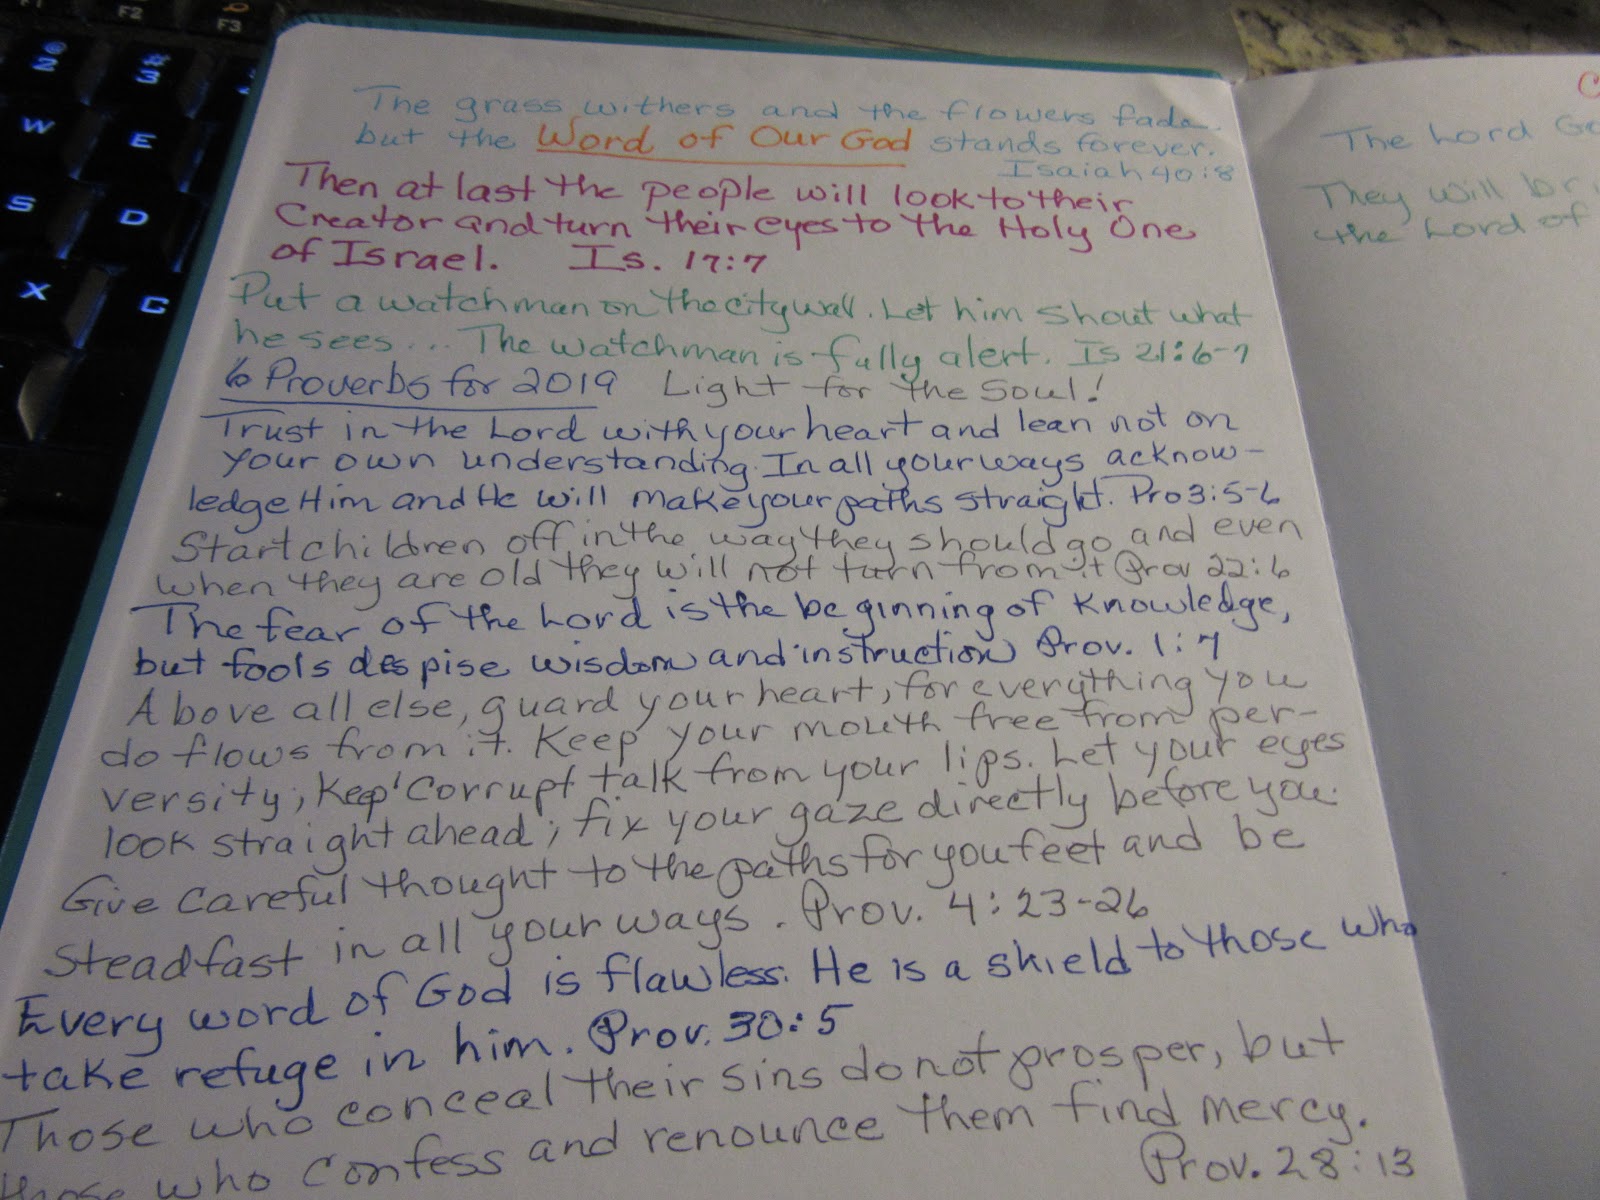 F2
F3
@
2
#
3
W
E
S
D
X
C
The grass withers and the flowers fade
but the Word of Our God stands forever.
Isaiah 40:8
Then at last the people will look to their
Creator and turn their eyes to the Holy One
of Israel. Is. 17:7
Put a watchman on the city wall. Let him shout what
he sees... The watchman is fully alert. Is 21:6-7
6 Proverbs for 2019 Light for the Soul!
Trust in the Lord with your heart and lean not on
your own understanding. In all your ways acknow-
ledge Him and He will make your paths straight. Pro 3:5-6
Start children off in the way they should go and even
when they are old they will not turn from it Prov 22:6
The fear of the Lord is the beginning of knowledge,
but fools despise wisdom and instruction Prov. 1:7
Above all else, guard your heart, for everything you
do flows from it. Keep your mouth free from per-
versity; keep corrupt talk from your lips. Let your eyes
look straight ahead; fix your gaze directly before you.
Give careful thought to the paths for you feet and be
steadfast in all your ways. Prov. 4:23-26
Every word of God is flawless. He is a shield to those who
take refuge in him. Prov. 30:5
Those who conceal their sins do not prosper, but
those who confess and renounce them find mercy.
Prov. 28:13
The Lord Go
They will bri
the Lord of